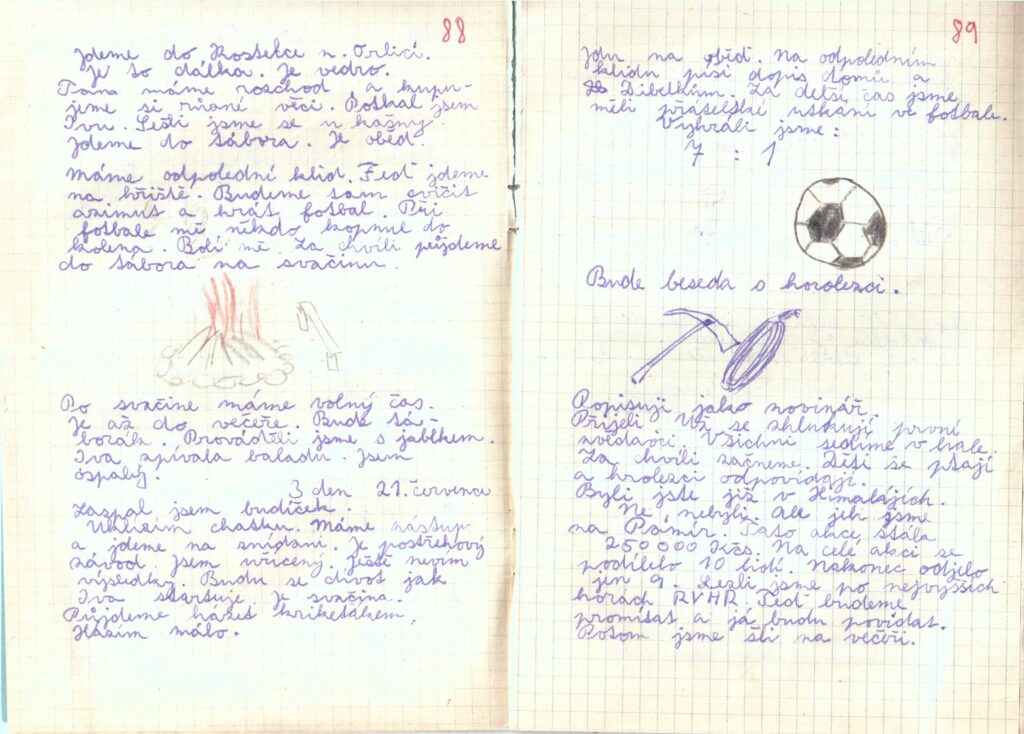 88
Jdeme do Kostelce n. Orlicí.
Je to dálka. Je vedro.
Tam máme rozchod, a kupu-
jeme si různé věci. Potkal jsem
Ivu. Sešli jsme se u kašny.
Jdeme do tábora. Je oběd.
Máme odpolední klid. Teď jdeme
na hřiště. Budeme tam cvičit
azimut a hrát fotbal. Při
fotbale mě někdo kopnul do
kolena. Bolí mě. Za chvíli půjdeme
do tábora na svačinu.
Po svačine máme volný čas.
Je až do večeře. Bude tá-
borák. Prováděli jsme s jablkem.
Iva zpívala baladu. Jsem
ospalý.
3 den 21. července
Zaspal jsem budíček.
Uklízím chatku. Máme nástup
a jdeme na snídani. Je postřehový
závod. Jsem uřícený. Ještě nevím
výsledky. Budu se dívat jak
Iva startuje. Je svačina.
Půjdeme házet kriketákem,
Házím málo.
89
Jdu na oběd. Na odpoledním
klidu píši dopis domů a
Zibelkům. Za delší čas jsme
měli přátelské utkání ve fotbale.
Vyhráli jsme:
7 : 1
Bude beseda o horolezci.
Popisuji jako novinář.
Přijeli. Už se shlukují první
zvědavci. Všichni sedíme v hale.
Za chvíli začneme. Děti se ptají
a hrolezci odpovídají.
Byli jste již v Himalájích.
Ne, nebyli. Ale jeli jsme
na Pamír. Tato akce stála
250 000 Kčs. Na celé akci se
podílelo 10 lidí. Nakonec odjelo
jen 9. Lezli jsme po nejvyšších
horách RVHP. Teď budeme
promítat a já budu povídat.
Potom jsme šli na večeři.